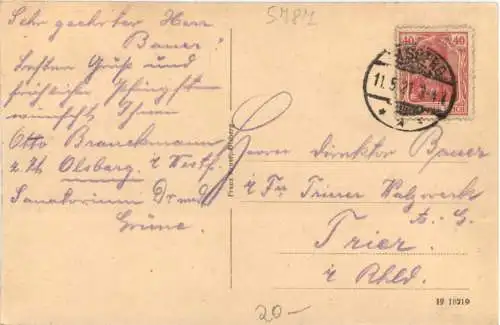 5787
Sehr geehrter Herr
Bauer!
Besten Grüße und
fröhliche Pfingsten
wünscht Ihnen
Otto Branckmann
z. Zt. Olsberg i. Westf.
Sanatorium Dr med
Grüne.
40 40
OLSBERG
11.5.21
Herrn Direktor Bauer
i/ Fa Trierer Walzwerk
A. G.
Trier
i/ Rhld.
19 18219
20-